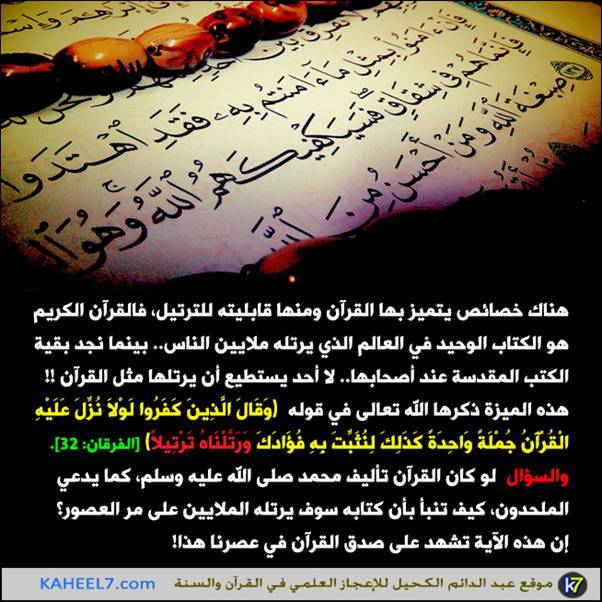 فَإِنْ ءَامَنُوا۟ بِمِثْلِ مَآ ءَامَنتُم بِهِۦ فَقَدِ ٱهْتَدَوا۟
فَإِنَّمَا هُمْ فِى شِقَاقٍ فَسَيَكْفِيكَهُمُ ٱللَّهُ وَهُوَ
صِبْغَةَ ٱللَّهِ وَمَنْ أَحْسَنُ مِنَ
هناك خصائص يتميز بها القرآن ومنها قابليته للترتيل، فالقرآن الكريم
هو الكتاب الوحيد في العالم الذي يرتله ملايين الناس.. بينما نجد بقية
الكتب المقدسة عند أصحابها.. لا أحد يستطيع أن يرتلها مثل القرآن !!
هذه الميزة ذكرها الله تعالى في قوله (وَقَالَ الَّذِينَ كَفَرُوا لَوْلَا نُزِّلَ عَلَيْهِ
الْقُرْآَنُ جُمْلَةً وَاحِدَةً كَذَلِكَ لِنُثَبِّتَ بِهِ فُؤَادَكَ وَرَتَّلْنَاهُ تَرْتِيلًا) [الفرقان: 32].
والسؤال لو كان القرآن تأليف محمد صلى الله عليه وسلم، كما يدعي
الملحدون، كيف تنبأ بأن كتابه سوف يرتله الملايين على مر العصور؟
إن هذه الآية تشهد على صدق القرآن في عصرنا هذا!
k7 موقع عبد الدائم الكحيل للإعجاز العلمي في القرآن والسنة KAHEEL7.com